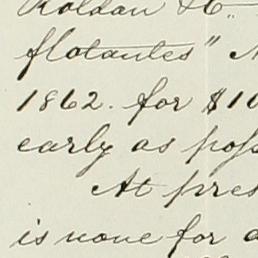 Roldan & C
flotantes"
1862. for $10
early as poss
At pres
is none for a